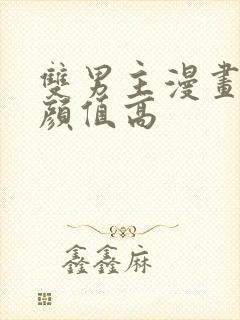 雙男主漫畫
顔值高
鑫鑫麻